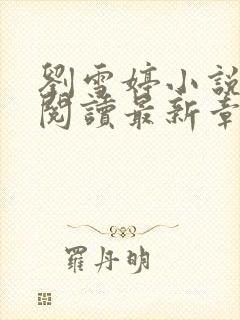 劉雪婷小說
閱讀最新章
羅丹明